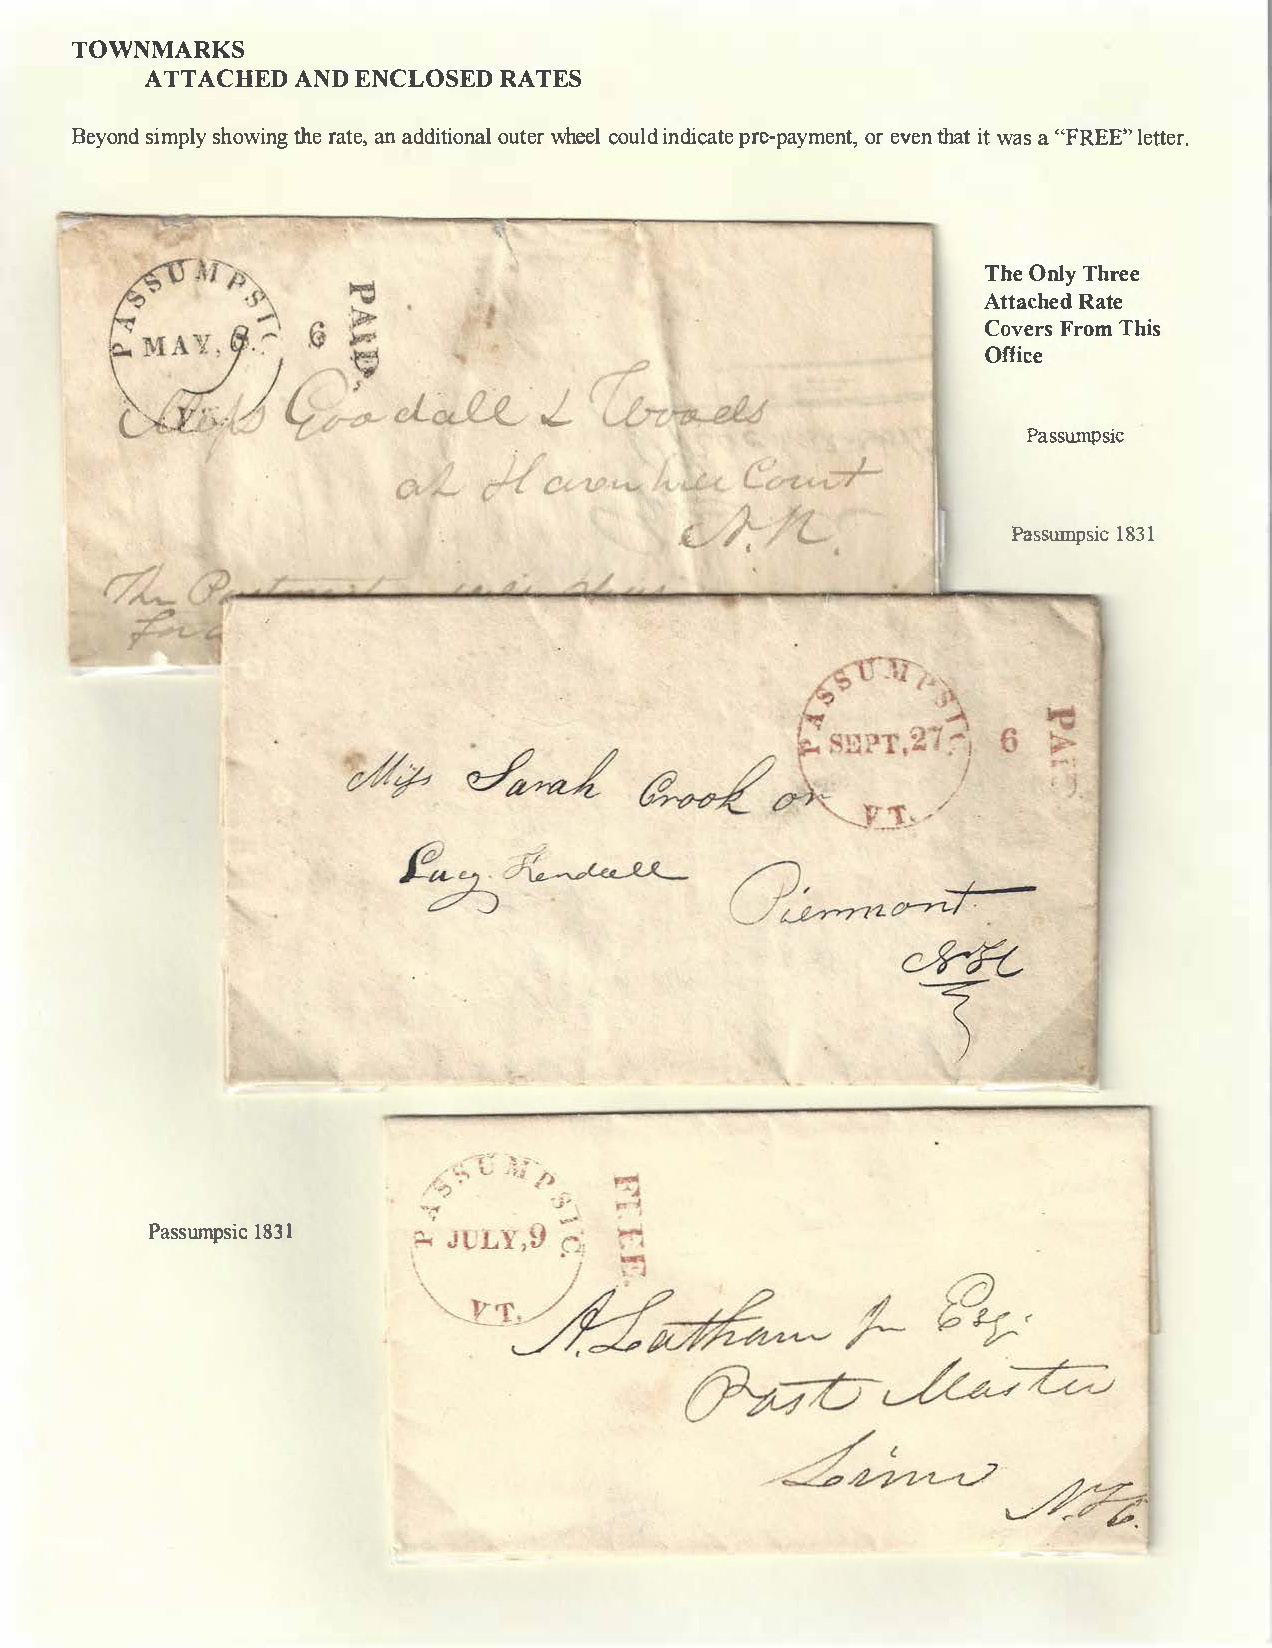 TOWNMARKS
ATTACHED AND ENCLOSED RATES
Beyond simply showing the rate, an additional outer wheel could indicate pre-payment, or even that it was a “FREE” letter.
The Only Three
Attached Rate
Covers From This
Office
Passumpsic
Passumpsic 1831
PASSUMPSIC
MAY, 8.
VT.
6
PAID.
Mess Goodall & Woods
at Haverhill Court
N.H.
The
PASSUMPSIC
SEPT, 27
VT.
6
PAID
Miss Sarah Crook or
Lucy Kendall
Piermont
NH
Passumpsic 1831
PASSUMPSIC.
JULY, 9
VT.
FREE.
A. Latham Jn Esq.
Post Master
Lime
N.H.